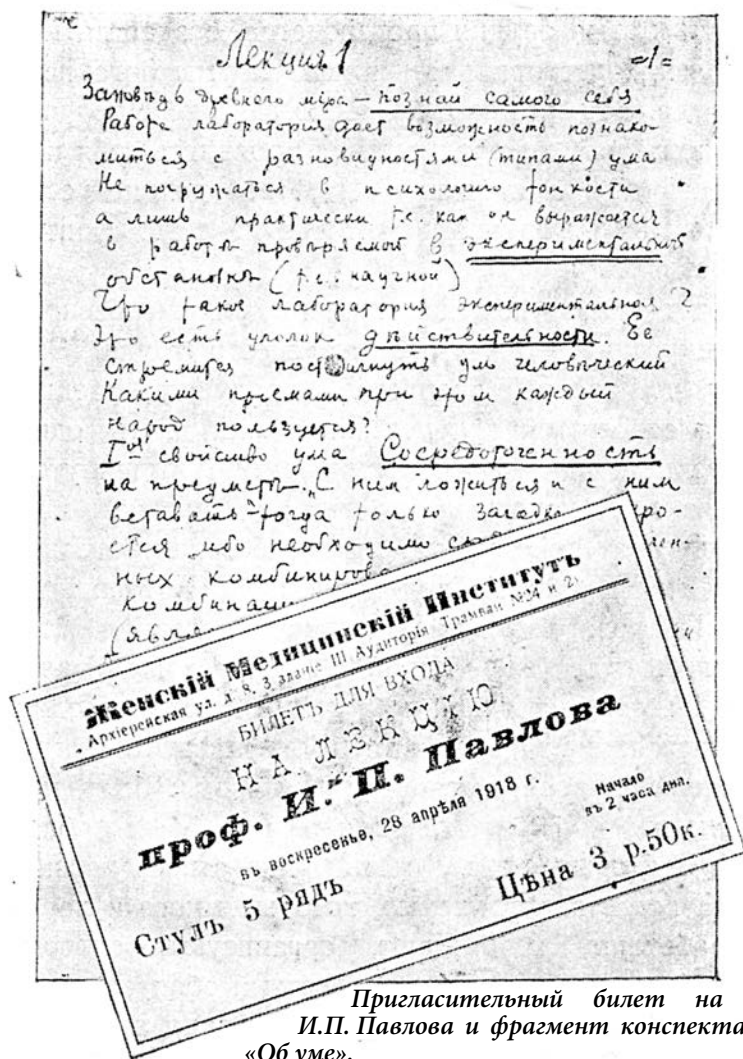 Лекція 1 =1=
Заповѣдь древнего міра – познай самого себя
Работа лаборатория дает возможность познако-
миться с разновидностями (типами) ума
Не погружаться в психологию тонкости
а лишь практически т.е. как он выражается
в работѣ провѣряемой в экспериментальной
обстановкѣ (т.е. научной)
Что такое лаборатория экспериментальная?
Это есть уголок дѣйствительности. Ее
стремится постигнуть умъ человѣческий
Какими приемами при этом каждый
народ пользуется?
I свойство ума Сосредоточенность
на предметѣ. „С ним ложиться и с ним
вставать" тогда только загадка
ется ибо необходимо
ных комбинирова
комбинаци
(явле
Женскій Медицинскій Институтъ
Архіерейская ул. д. 8, 3 зданіе III Аудиторія. Трамваи №24 и 2
БИЛЕТЪ ДЛЯ ВХОДА
НА ЛЕКЦІЮ
проф. И. П. Павлова
въ воскресенье, 28 апрѣля 1918 г.
Начало
въ 2 часа дня.
Стулъ 5 рядъ
Цѣна 3 р.50к.
Пригласительный билет на
И.П. Павлова и фрагмент конспекта
«Об уме».